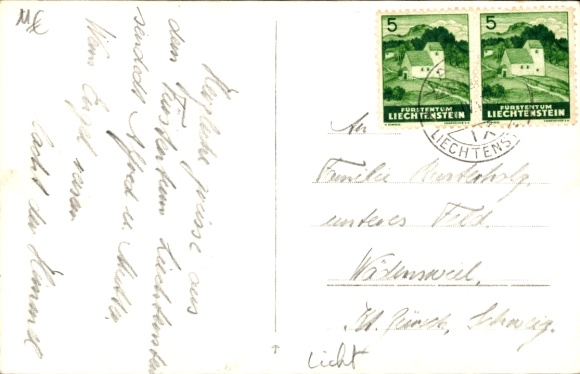 Herzliche Grüsse aus
dem Fürstentum Liechtenstein
sendet Alfred u. Mutter
Wenn Engel reisen
lacht der Himmel
5
5
FÜRSTENTUM
LIECHTENSTEIN
FÜRSTENTUM
LIECHTENSTEIN
LIECHTENST
An
Familie
unteres Feld
Wädenswil,
Kt. Zürich, Schweiz.
Licht